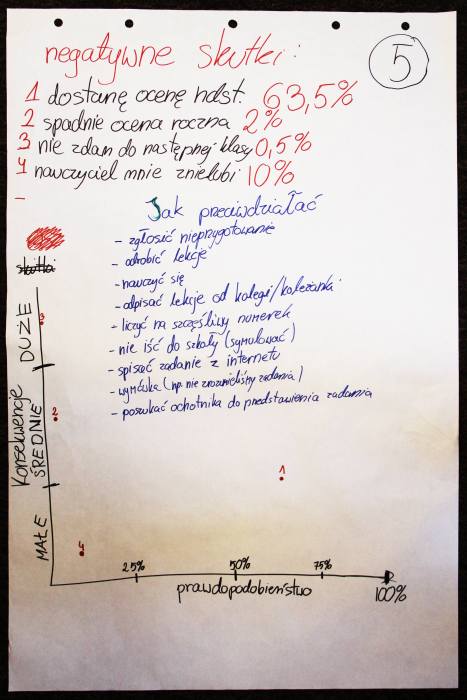 negatywne skutki:
5
1 dostanę ocenę ndst. 63,5%
2 spadnie ocena roczna 2%
3 nie zdam do następnej klasy 0,5%
4 nauczyciel mnie znielubi 10%
–
Jak przeciwdziałać
- zgłosić nieprzygotowanie
- odrobić lekcje
- nauczyć się
- odpisać lekcje od kolegi/koleżanki
- liczyć na szczęśliwy numerek
- nie iść do szkoły (symulować)
- spisać zadanie z internetu
- wymówka (np. nie zrozumieliśmy zadania)
- poszukać ochotnika do przedstawienia zadania
skutki
Konsekwencje
DUŻE
ŚREDNIE
MAŁE
3
2
1
4
25% 50% 75%
100%
prawdopodobieństwo